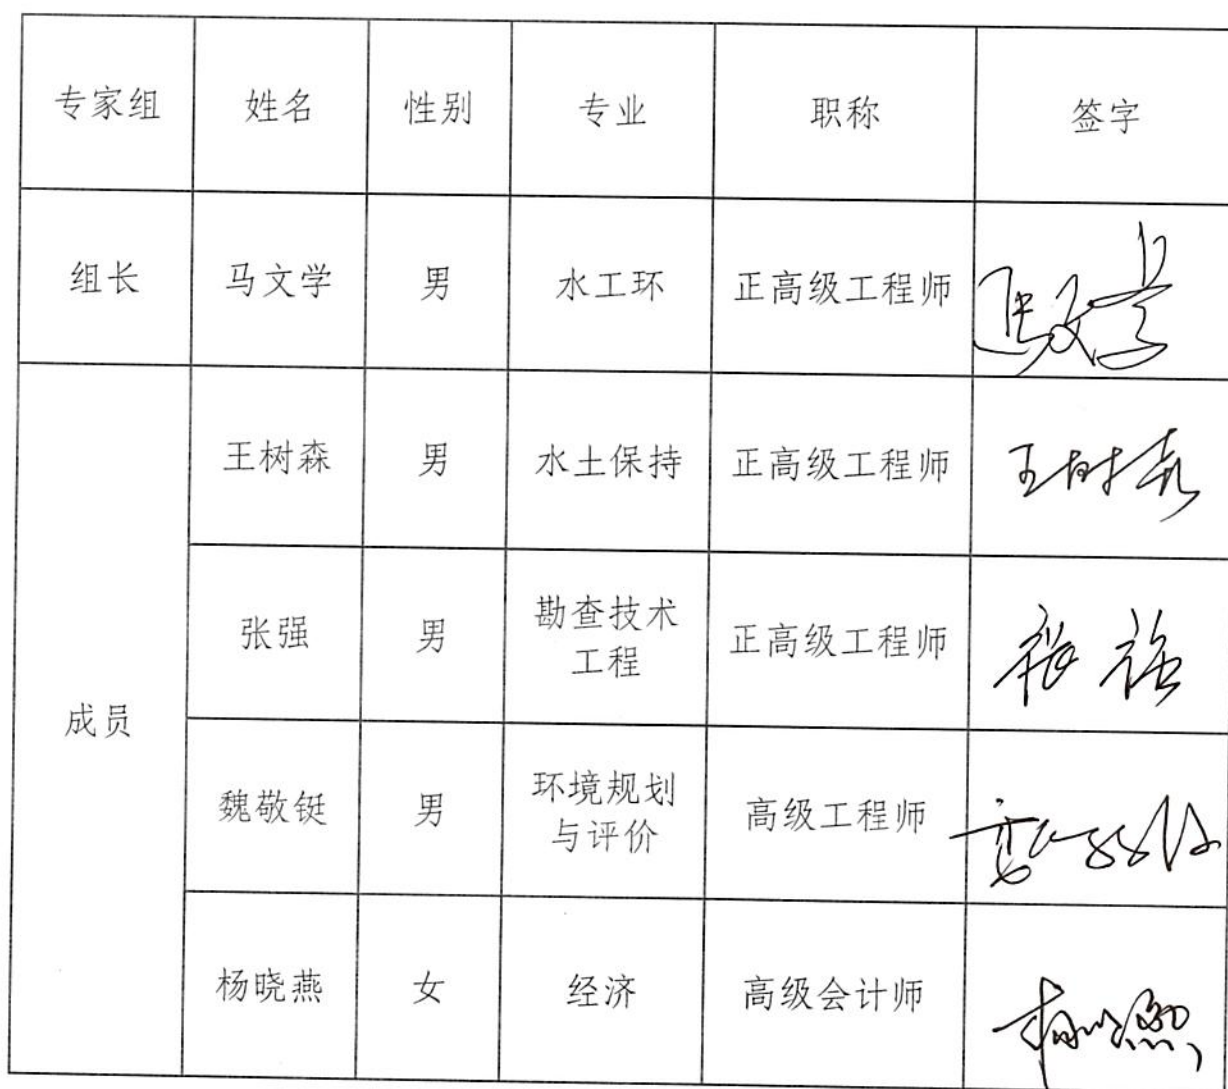 专家组 姓名 性别 专业 职称 签字
组长 马文学 男 水工环 正高级工程师 马文学
成员
王树森 男 水土保持 正高级工程师 王树森
张强 男 勘查技术
工程 正高级工程师 张强
魏敬铤 男 环境规划
与评价 高级工程师
杨晓燕 女 经济 高级会计师 杨晓燕